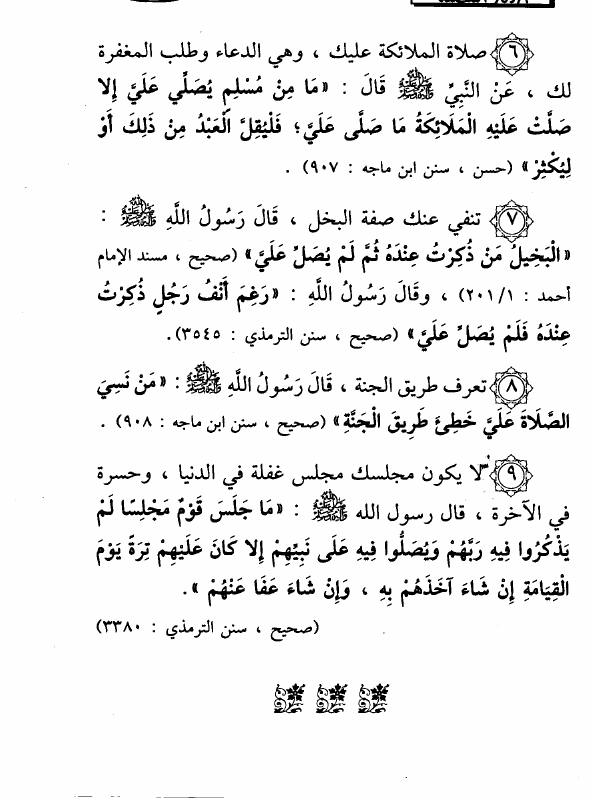 ٦ صلاة الملائكة عليك ، وهي الدعاء وطلب المغفرة
لك ، عَنْ النَّبِيِّ ﷺ قَالَ : «مَا مِنْ مُسْلِمٍ يُصَلِّي عَلَيَّ إِلا
صَلَّتْ عَلَيْهِ الْمَلَائِكَةُ مَا صَلَّى عَلَيَّ؛ فَلْيُقِلَّ الْعَبْدُ مِنْ ذَلِكَ أَوْ
لِيُكْثِرْ» (حسن ، سنن ابن ماجه : ٩٠٧) .
٧ تنفي عنك صفة البخل ، قَالَ رَسُولُ اللَّهِ ﷺ :
«الْبَخِيلُ مَنْ ذُكِرْتُ عِنْدَهُ ثُمَّ لَمْ يُصَلِّ عَلَيَّ» (صحيح ، مسند الإمام
أحمد : ٢٠١/١) ، وقَالَ رَسُولُ اللَّهِ : «رَغِمَ أَنْفُ رَجُلٍ ذُكِرْتُ
عِنْدَهُ فَلَمْ يُصَلِّ عَلَيَّ» (صحيح ، سنن الترمذي : ٣٥٤٥).
٨ تعرف طريق الجنة ، قَالَ رَسُولُ اللَّهِ ﷺ : «مَنْ نَسِيَ
الصَّلَاةَ عَلَيَّ خَطِئَ طَرِيقَ الْجَنَّةِ» (صحيح ، سنن ابن ماجه : ٩٠٨) .
٩ لا يكون مجلسك مجلس غفلة في الدنيا ، وحسرة
في الآخرة ، قال رسول الله ﷺ : «مَا جَلَسَ قَوْمٌ مَجْلِسًا لَمْ
يَذْكُرُوا فِيهِ رَبَّهُمْ وَيُصَلُّوا فِيهِ عَلَى نَبِيِّهِمْ إِلا كَانَ عَلَيْهِمْ تِرَةً يَوْمَ
الْقِيَامَةِ إِنْ شَاءَ آخَذَهُمْ بِهِ ، وَإِنْ شَاءَ عَفَا عَنْهُمْ ».
(صحيح ، سنن الترمذي : ٣٣٨٠)